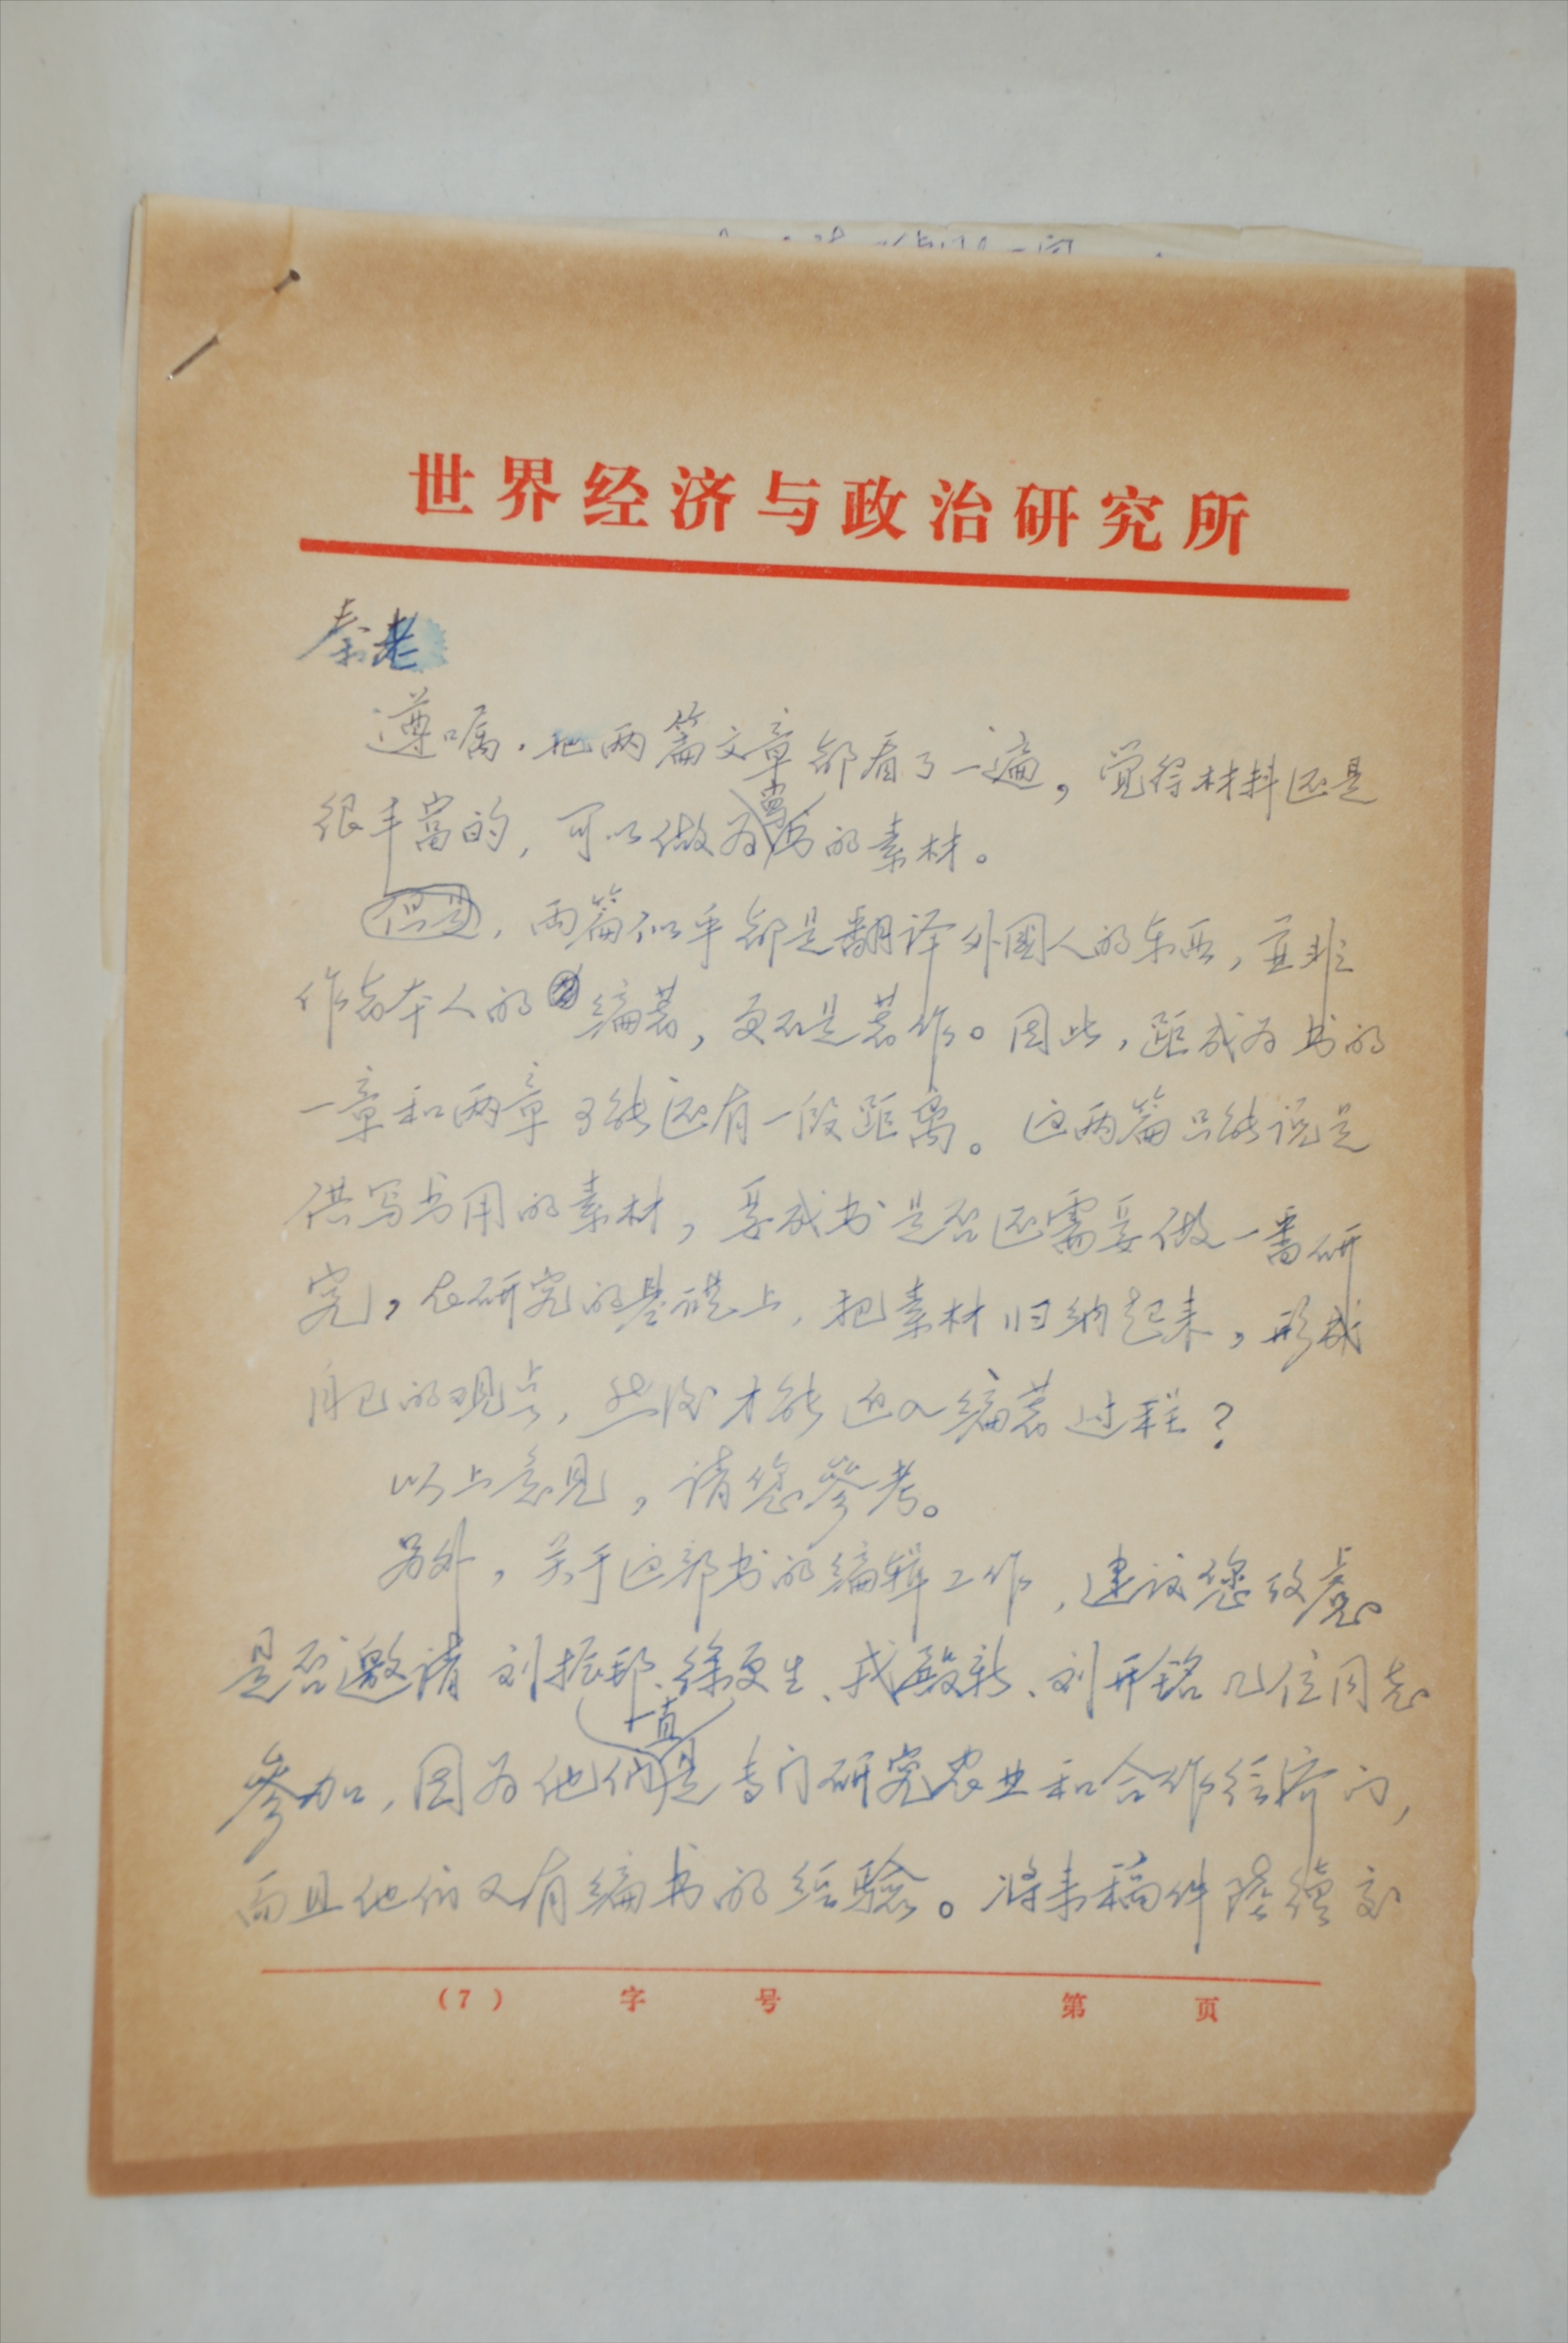 世界经济与政治研究所
秦老
遵嘱,把两篇文章都看了一遍,觉得材料还是
很丰富的,可以做为写书的素材。
但是,两篇似乎都是翻译外國人的东西,並非
作者本人的编著,更不是著作。因此,距成为书的
一章和两章可能还有一段距离。这两篇只能说是
供写书用的素材,要成书是否还需要做一番研
究,在研究的基礎上,把素材归纳起来,形成
自己的观点,然后才能进入编著过程?
以上意见,请您參考。
另外,关于这部书的编辑工作,建议您攷慮
是否邀请刘振邦、徐更生、戎殿新、刘开铭几位同志
參加,因为他们一直是专门研究农业和合作经济的,
而且他们又有编书的经驗。将来稿件陸續交
(7) 字 号 第 页